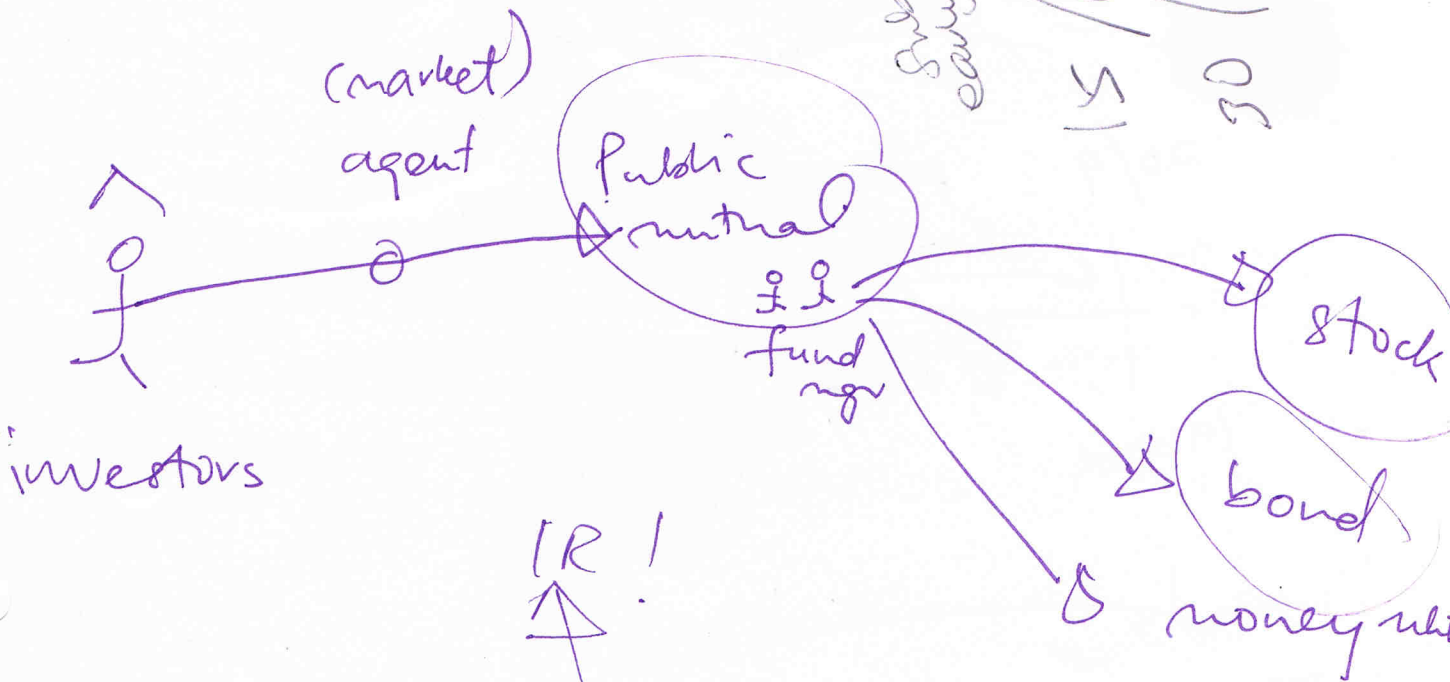 (market)
agent
Public
mutual
fund
mgr
investors
stock
bond
money
IR!
15
30